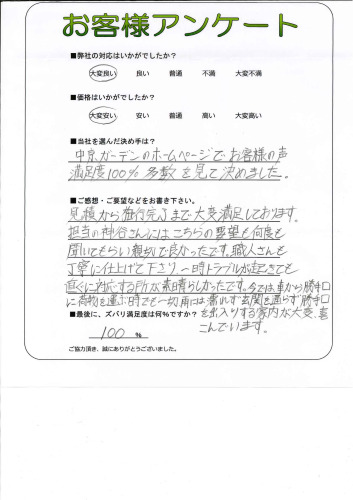 お客様アンケート
■弊社の対応はいかがでしたか?
大変良い 良い 普通 不満 大変不満
■価格はいかがでしたか?
大変安い 安い 普通 高い 大変高い
■当社を選んだ決め手は?
中京ガーデンのホームページでお客様の声
満足度100%多数を見て決めました。
■ご感想・ご要望などをお書き下さい。
見積から施行完了まで大変満足しております。
担当の神谷さんにはこちらの要望も何度も
聞いてもらい親切で良かったです。職人さんも
丁寧に仕上げて下さり、一時トラブルが起きても
直ぐに対応する所が素晴らしかったです。今では、車から勝手口
に荷物を運ぶ時でも一切雨には濡れず玄関を通らず勝手口
を出入りする家内が大変、喜
こんでいます。
■最後に、ズバリ満足度は何%ですか?
100 %
ご協力頂き、誠にありがとうございました。